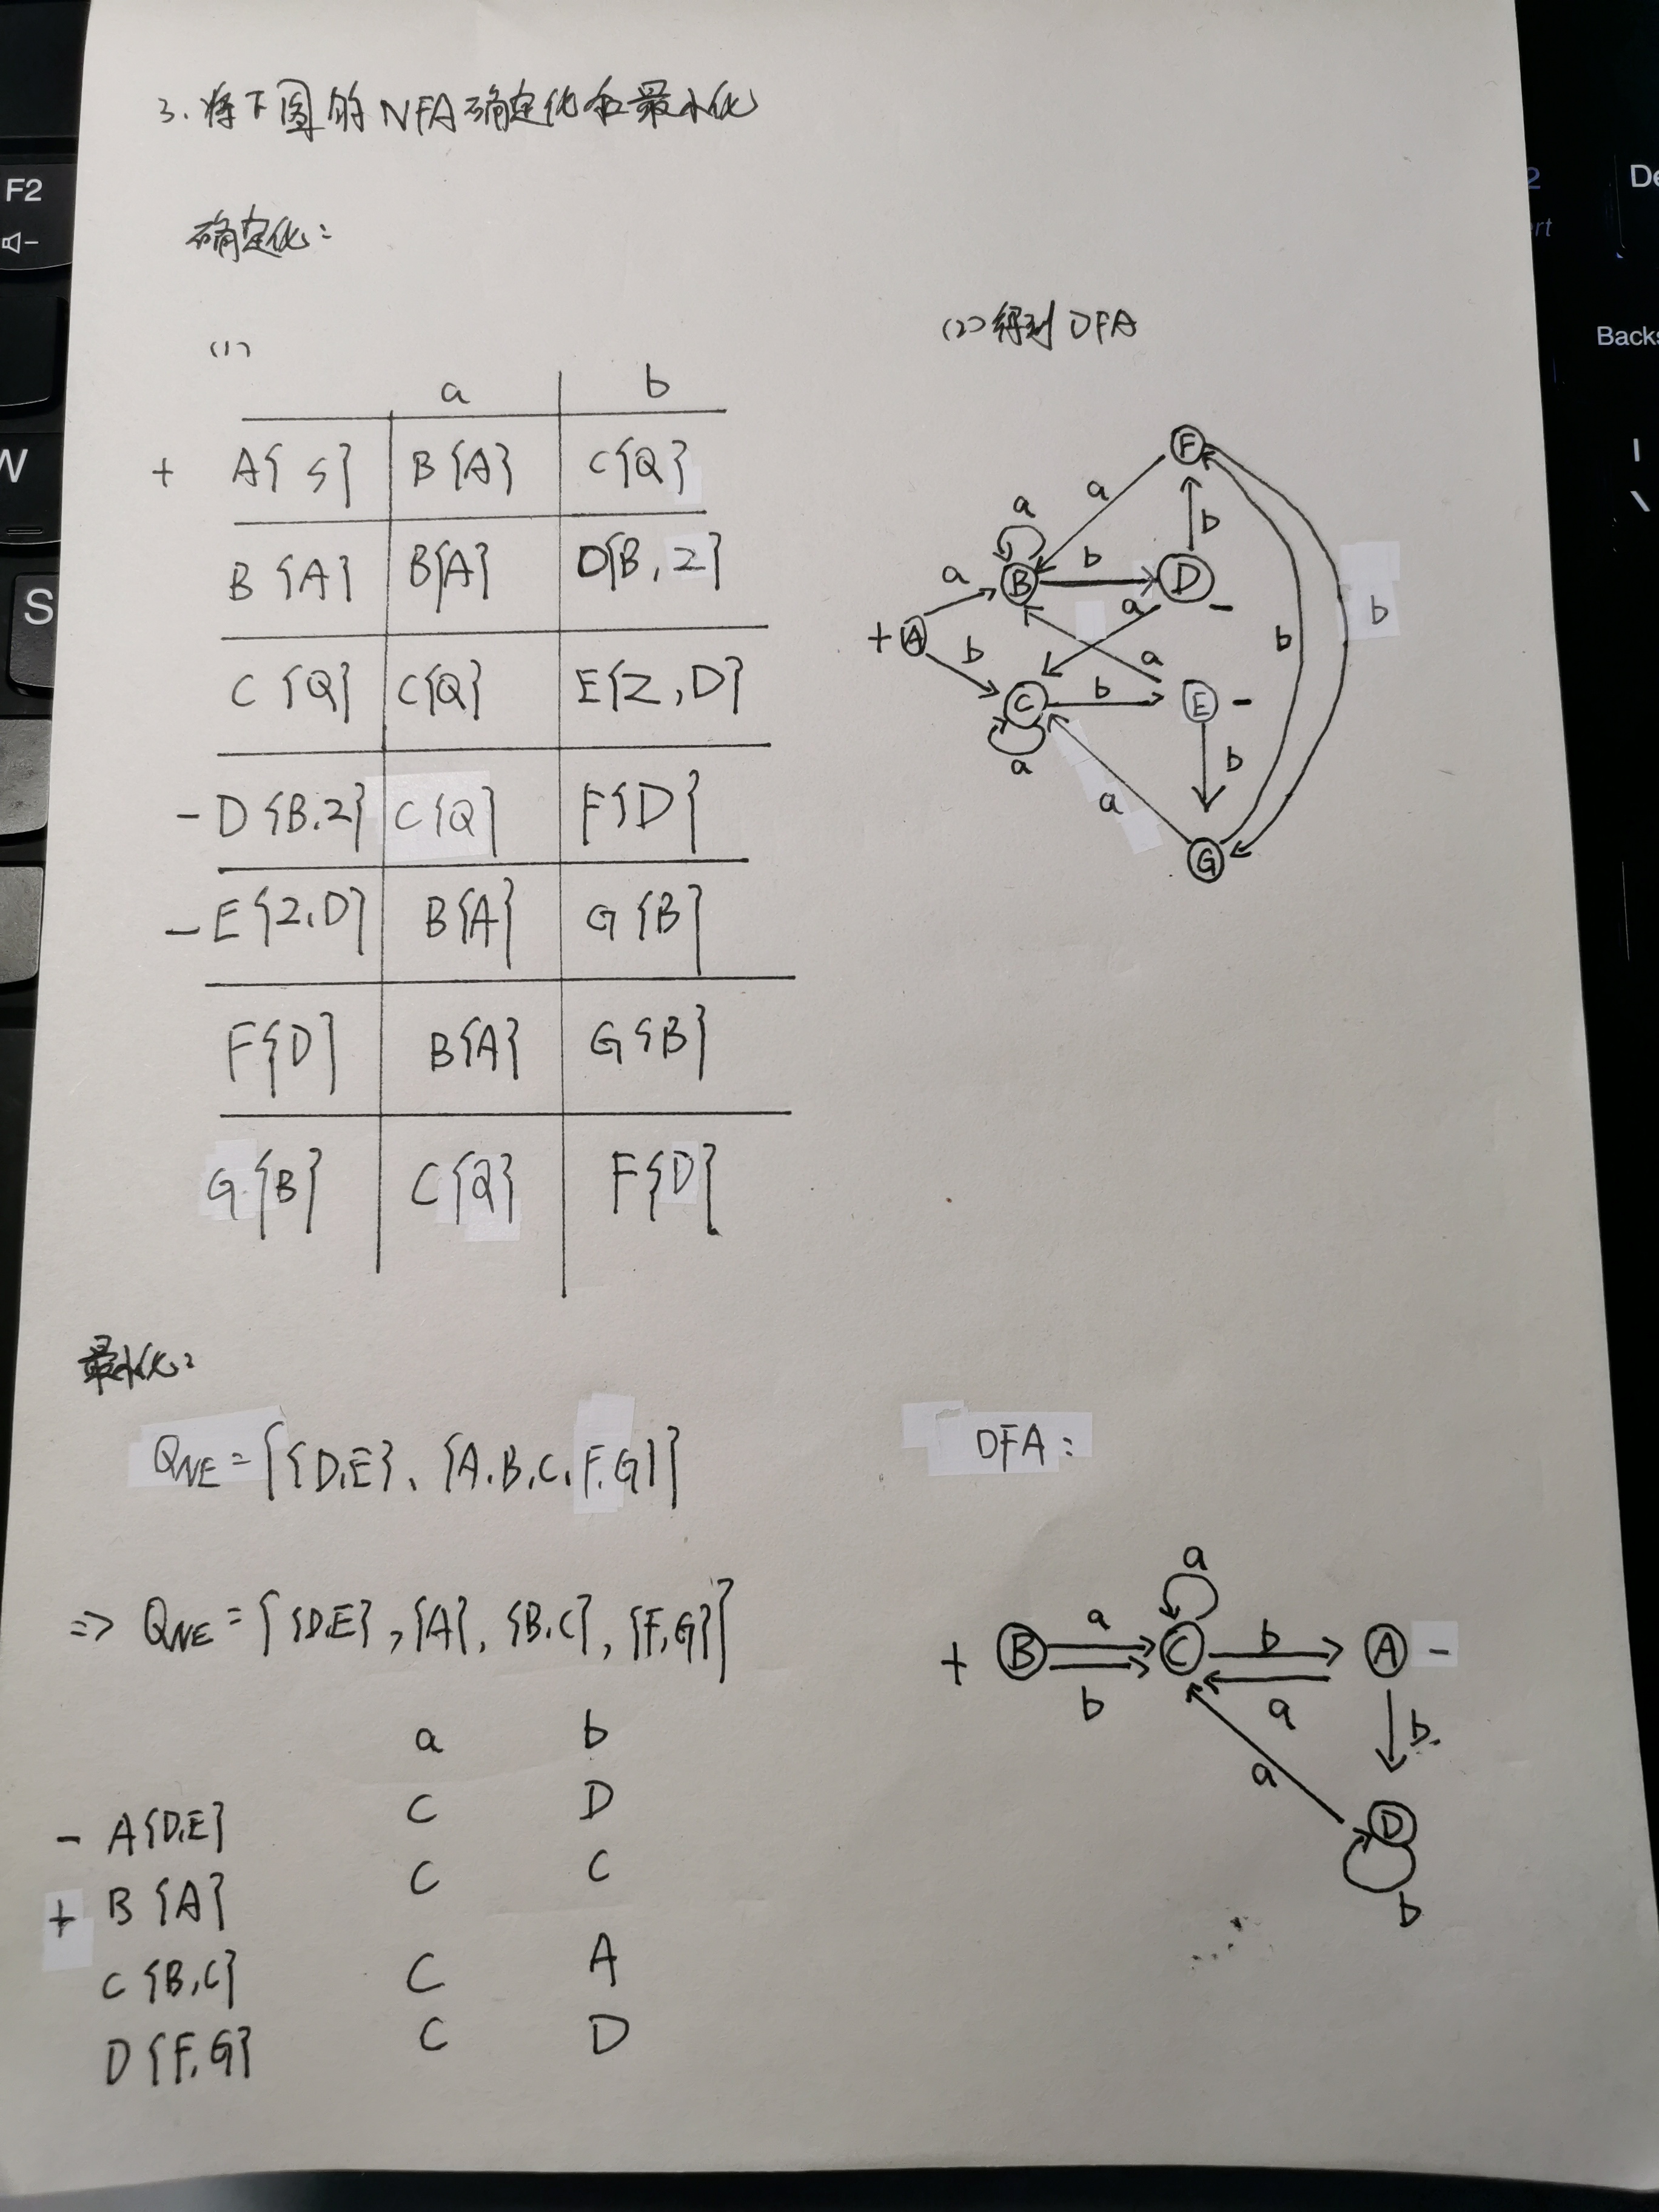 3. 将下图的NFA确定化和最小化
确定化:
(1)
a b
+ A{S} B{A} C{Q}
B{A} B{A} D{B,Z}
C{Q} C{Q} E{Z,D}
- D{B,Z} C{Q} F{D}
- E{Z,D} B{A} G{B}
F{D} B{A} G{B}
G{B} C{Q} F{D}
(2) 得到DFA
F
a
b
a
B
b
D
-
a
a
b
b
+ A
b
a
C
b
E
-
a
b
a
G
最小化:
Q_NE = {{D,E}, {A,B,C,F,G}}
⇒ Q_NE = {{D,E}, {A}, {B,C}, {F,G}}
a b
- A{D,E} C D
+ B{A} C C
C{B,C} C A
D{F,G} C D
DFA:
a
+ B
a
C
b
A
-
b
a
b
a
D
b
F2
W
S
De
Backs